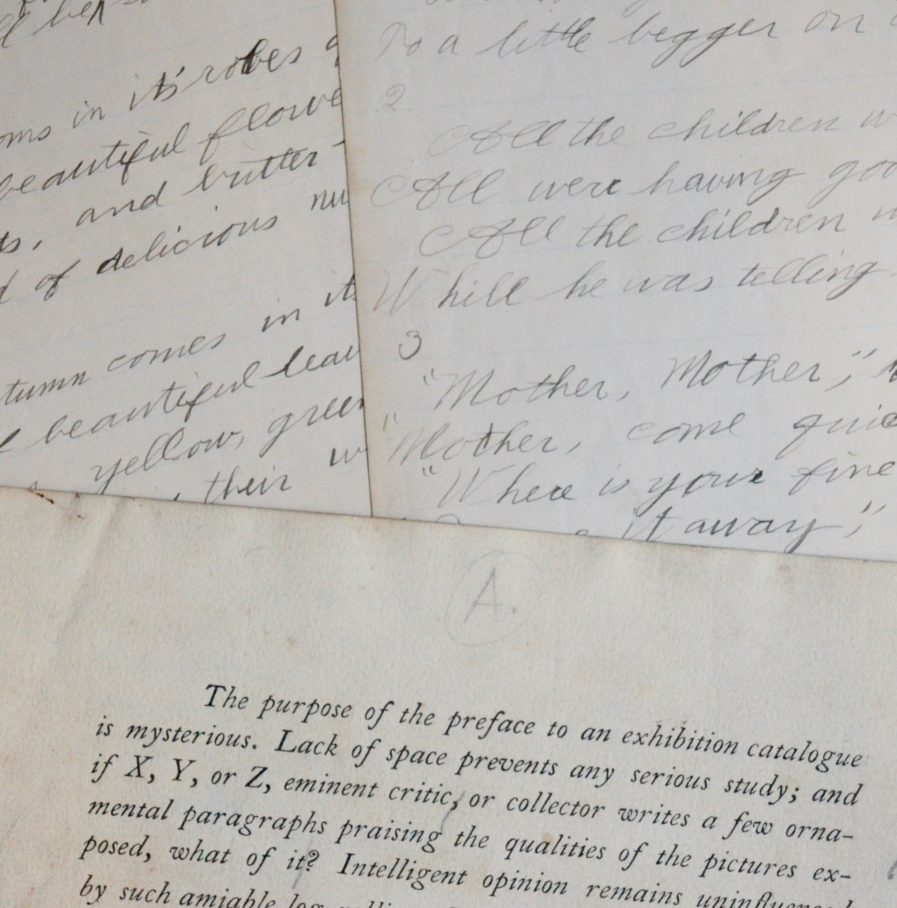 in it's robes
beautiful flowe
and butter-
of delicious nu
tumn comes in it
beautiful leav
yellow, green
their w
To a little begger on
2
All the children w
All were having goo
All the children w
Whill he was telling
3
"Mother, Mother," 
Mother, come quic
"Where is your fine
it away,"
A.
The purpose of the preface to an exhibition catalogue
is mysterious. Lack of space prevents any serious study; and
if X, Y, or Z, eminent critic, or collector writes a few orna-
mental paragraphs praising the qualities of the pictures ex-
posed, what of it? Intelligent opinion remains uninfluenced
by such amiable log